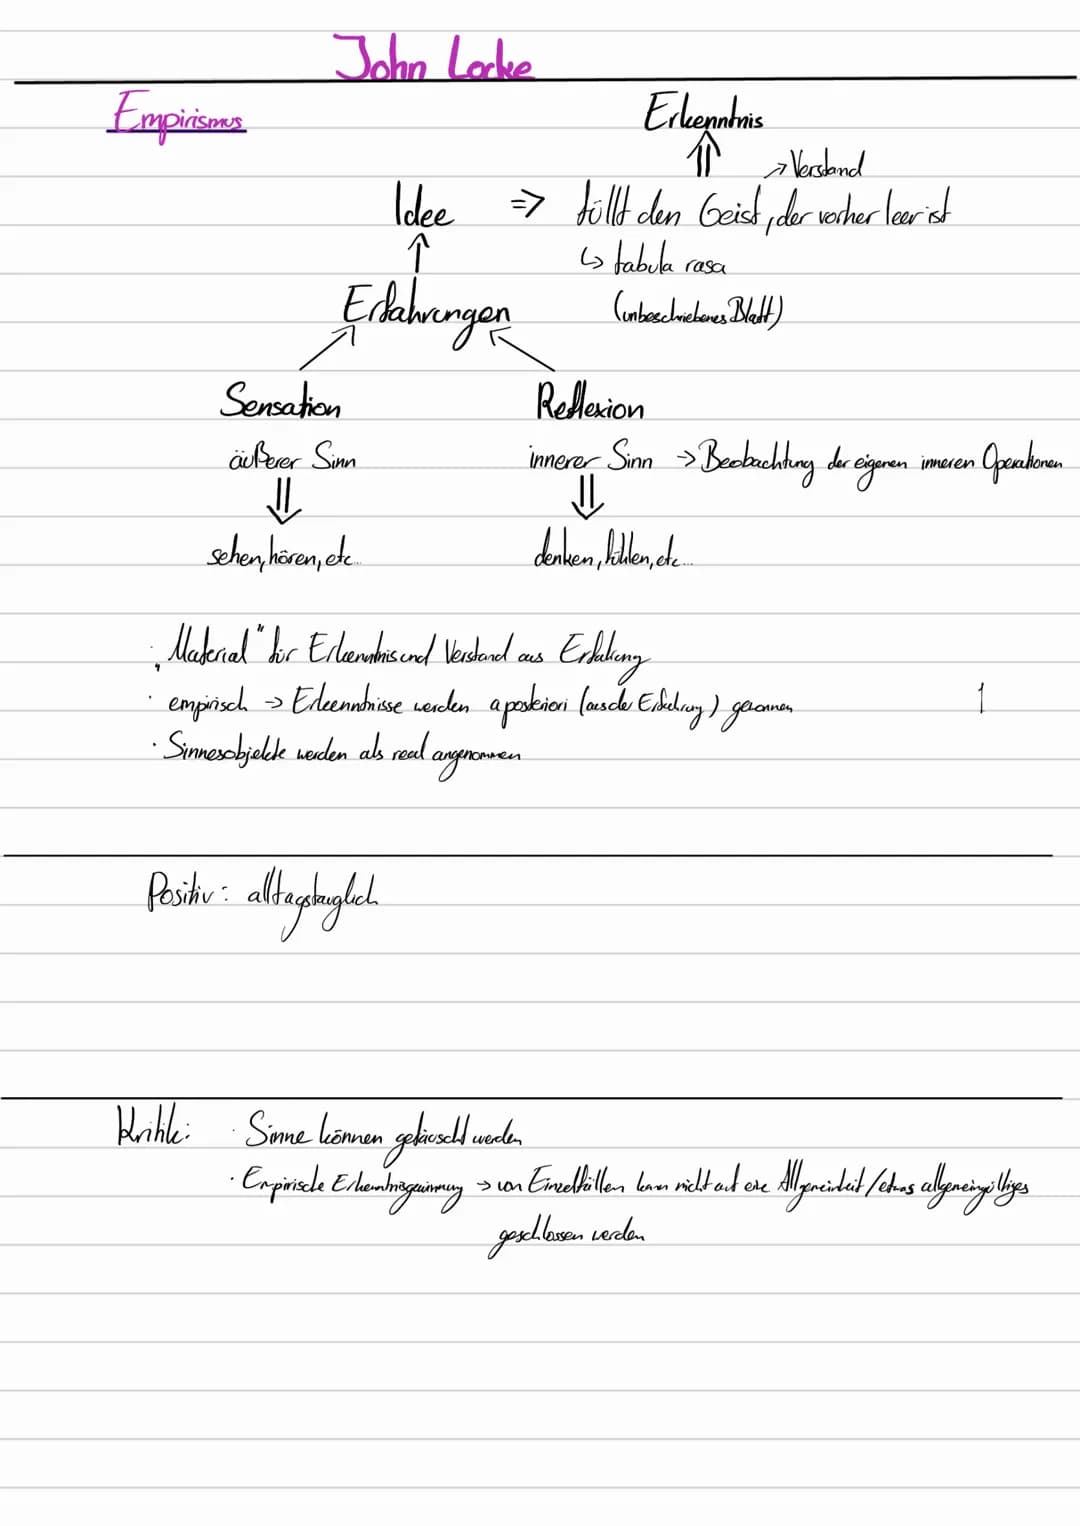 John Locke
Empirismus
Erkenntnis
⇑ → Verstand
Idee => füllt den Geist, der vorher leer ist
↑ ↳ tabula rasa
Erfahrungen (unbeschriebenes Blatt)
Sensation Reflexion
äußerer Sinn innerer Sinn → Beobachtung der eigenen inneren Operationen
⇓ ⇓
sehen, hören, etc... denken, fühlen, etc...
· „Material" für Erkenntnis und Verstand aus Erfahrung
· empirisch → Erkenntnisse werden a posteriori (aus der Erfahrung) gewonnen
1
· Sinnesobjekte werden als real angenommen
Positiv: alltagstauglich
Kritik: · Sinne können getäuscht werden
· Empirische Erkenntnisgewinnung → von Einzelfällen kann nicht auf eine Allgemeinheit / etwas allgemeingültiges
geschlossen werden